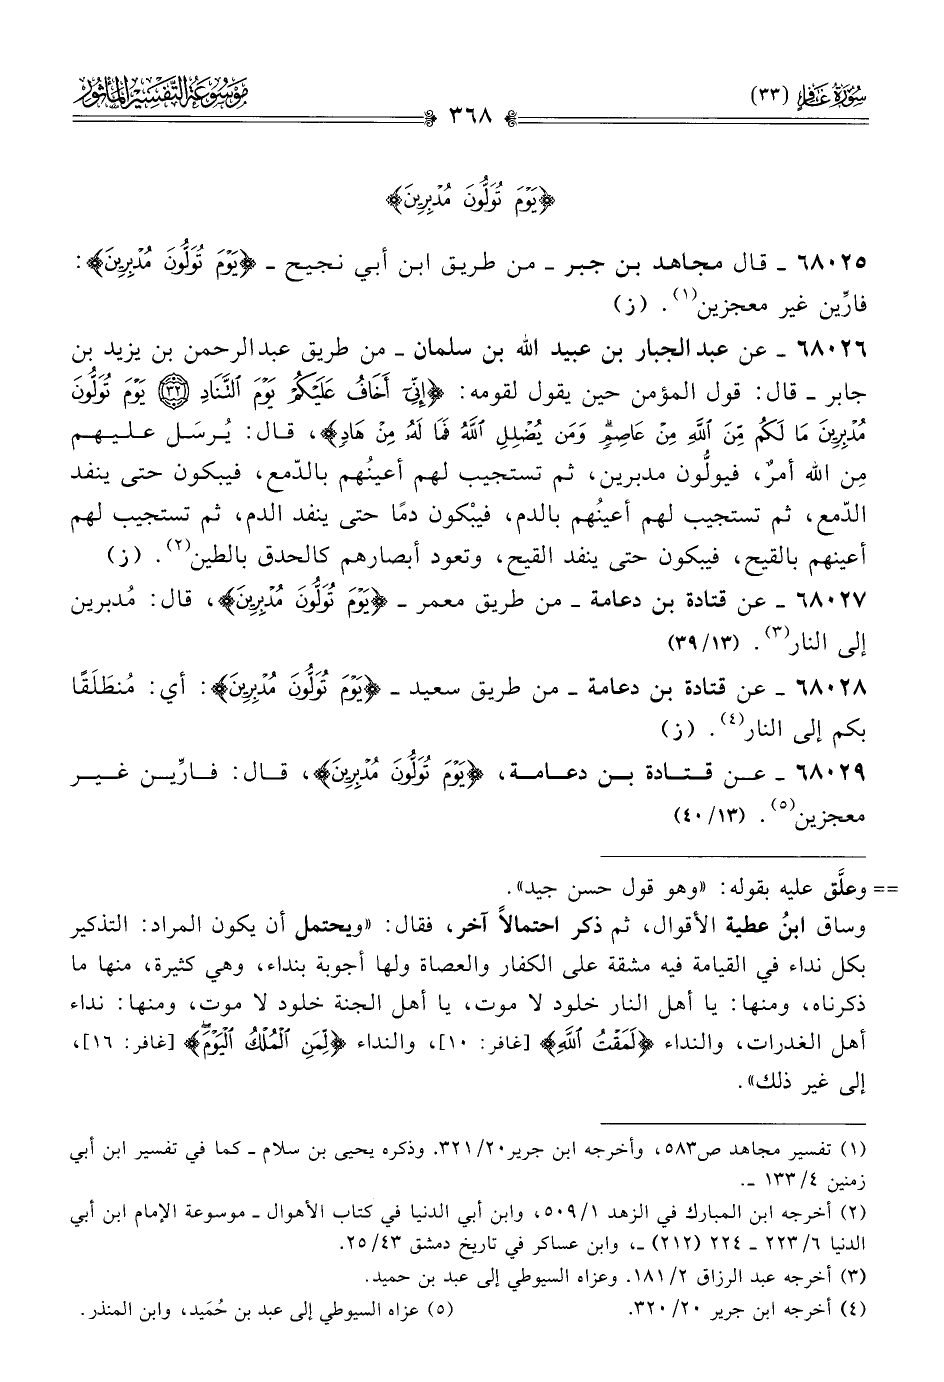 سُورَةُ غَافِرٍ (٣٣)
٣٦٨
مَوْسُوعَةُ التَّفْسِيرِ المَأْثُورِ
﴿يَوْمَ تُوَلُّونَ مُدْبِرِينَ﴾
٦٨٠٢٥ ـ قال مجاهد بن جبر ـ من طريق ابن أبي نجيح ـ ﴿يَوْمَ تُوَلُّونَ مُدْبِرِينَ﴾:
فارِّين غير معجزين(١). (ز)
٦٨٠٢٦ ـ عن عبد الجبار بن عبيد الله بن سلمان ـ من طريق عبدالرحمن بن يزيد بن
جابر ـ قال: قول المؤمن حين يقول لقومه: ﴿إِنِّيٓ أَخَافُ عَلَيْكُمْ يَوْمَ ٱلتَّنَادِ ٣٢ يَوْمَ تُوَلُّونَ
مُدْبِرِينَ مَا لَكُم مِّنَ ٱللَّهِ مِنْ عَاصِمٍۗ وَمَن يُضْلِلِ ٱللَّهُ فَمَا لَهُۥ مِنْ هَادٍ﴾، قال: يُرسَل عليهم
مِن الله أمرٌ، فيولُّون مدبرين، ثم تستجيب لهم أعينُهم بالدّمع، فيبكون حتى ينفد
الدّمع، ثم تستجيب لهم أعينُهم بالدم، فيبْكون دمًا حتى ينفد الدم، ثم تستجيب لهم
أعينهم بالقيح، فيبكون حتى ينفد القيح، وتعود أبصارهم كالحدق بالطين(٢). (ز)
٦٨٠٢٧ ـ عن قتادة بن دعامة ـ من طريق معمر ـ ﴿يَوْمَ تُوَلُّونَ مُدْبِرِينَ﴾، قال: مُدبرين
إلى النار(٣). (٣٩/١٣)
٦٨٠٢٨ ـ عن قتادة بن دعامة ـ من طريق سعيد ـ ﴿يَوْمَ تُوَلُّونَ مُدْبِرِينَ﴾: أي: مُنطَلَقًا
بكم إلى النار(٤). (ز)
٦٨٠٢٩ ـ عن قتادة بن دعامة، ﴿يَوْمَ تُوَلُّونَ مُدْبِرِينَ﴾، قال: فارِّين غير
معجزين(٥). (٤٠/١٣)
== وعلَّق عليه بقوله: «وهو قول حسن جيد».
وساق ابنُ عطية الأقوال، ثم ذكر احتمالاً آخر، فقال: «ويحتمل أن يكون المراد: التذكير
بكل نداء في القيامة فيه مشقة على الكفار والعصاة ولها أجوبة بنداء، وهي كثيرة، منها ما
ذكرناه، ومنها: يا أهل النار خلود لا موت، يا أهل الجنة خلود لا موت، ومنها: نداء
أهل الغدرات، والنداء ﴿لَمَقْتُ ٱللَّهِ﴾ [غافر: ١٠]، والنداء ﴿لِّمَنِ ٱلْمُلْكُ ٱلْيَوْمَۖ﴾ [غافر: ١٦]،
إلى غير ذلك».
(١) تفسير مجاهد ص٥٨٣، وأخرجه ابن جرير٣٢١/٢٠. وذكره يحيى بن سلام ـ كما في تفسير ابن أبي
زمنين ١٣٣/٤ ـ.
(٢) أخرجه ابن المبارك في الزهد ٥٠٩/١، وابن أبي الدنيا في كتاب الأهوال ـ موسوعة الإمام ابن أبي
الدنيا ٢٢٣/٦ ـ ٢٢٤ (٢١٢) ـ، وابن عساكر في تاريخ دمشق ٢٥/٤٣.
(٣) أخرجه عبد الرزاق ١٨١/٢. وعزاه السيوطي إلى عبد بن حميد.
(٤) أخرجه ابن جرير ٣٢٠/٢٠. (٥) عزاه السيوطي إلى عبد بن حُمَيد، وابن المنذر.